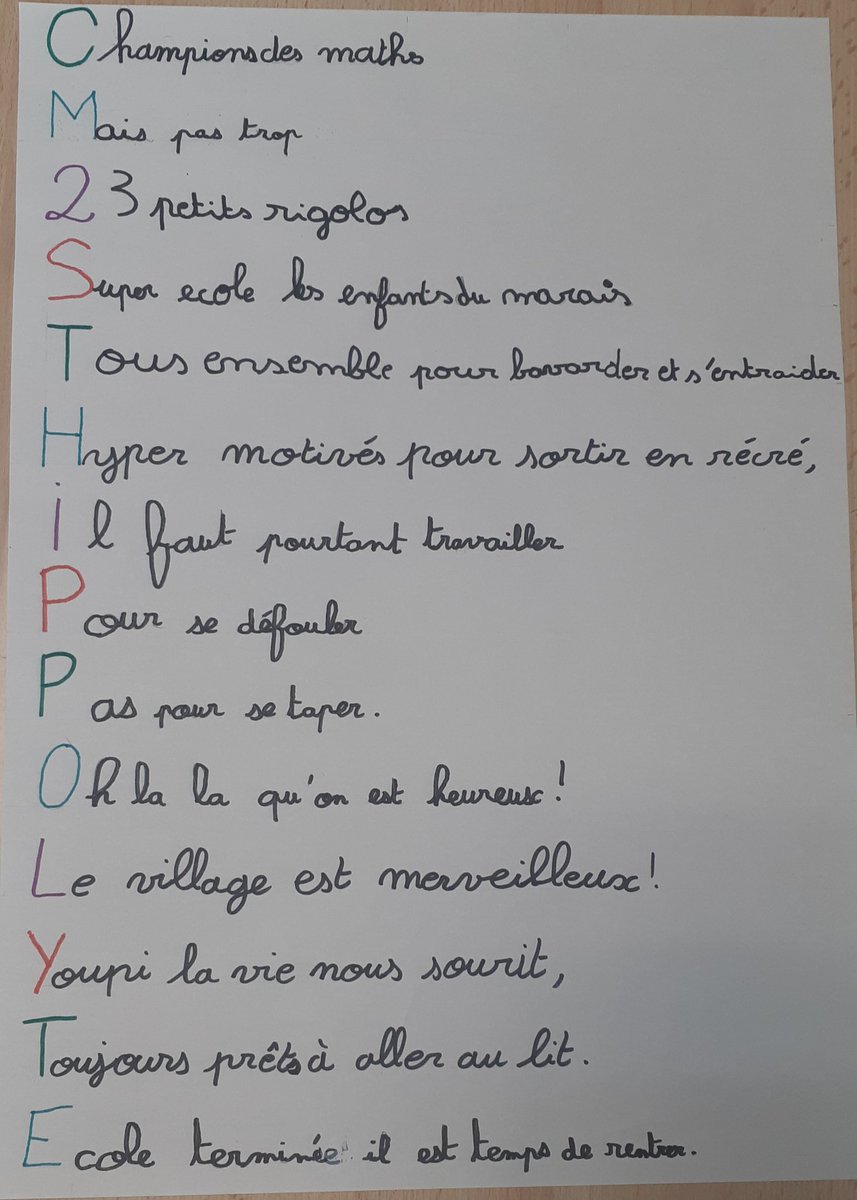 Champions des maths
Mais pas trop
23 petits rigolos
Super ecole les enfants du marais
Tous ensemble pour bavarder et s'entraider
Hyper motivés pour sortir en récré,
il faut pourtant travailler
Pour se défouler
Pas pour se taper.
Oh la la qu'on est heureux !
Le village est merveilleux !
Youpi la vie nous sourit,
Toujours prêts à aller au lit.
Ecole terminée il est temps de rentrer.